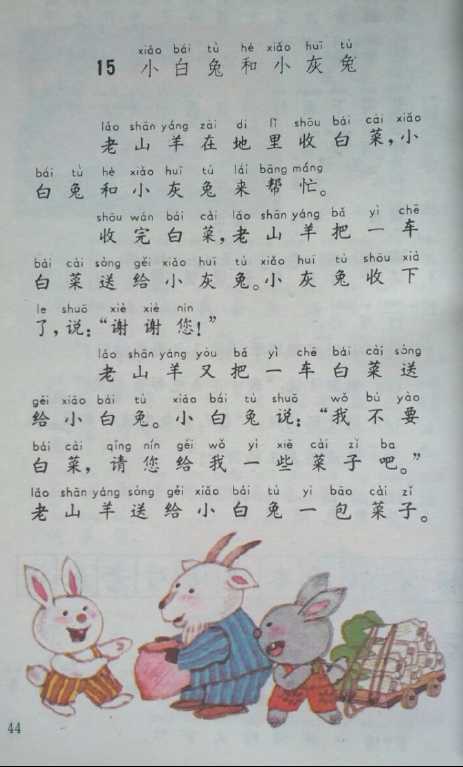 xiǎo bái tù hé xiǎo huī tù
15 小白兔和小灰兔
lǎo shān yáng zài dì lǐ shōu bái cài xiǎo
老山羊在地里收白菜，小
bái tù hé xiǎo huī tù lái bāng máng
白兔和小灰兔来帮忙。
shōu wán bái cài lǎo shān yáng bǎ yì chē
收完白菜，老山羊把一车
bái cài sòng gěi xiǎo huī tù xiǎo huī tù shōu xià
白菜送给小灰兔。小灰兔收下
le shuō xiè xiè nín
了，说：“谢谢您！”
lǎo shān yáng yòu bǎ yì chē bái cài sòng
老山羊又把一车白菜送
gěi xiǎo bái tù xiǎo bái tù shuō wǒ bú yào
给小白兔。小白兔说：“我不要
bái cài qǐng nín gěi wǒ yì xiē cài zǐ ba
白菜，请您给我一些菜子吧。”
lǎo shān yáng sòng gěi xiǎo bái tù yì bāo cài zǐ
老山羊送给小白兔一包菜子。
44